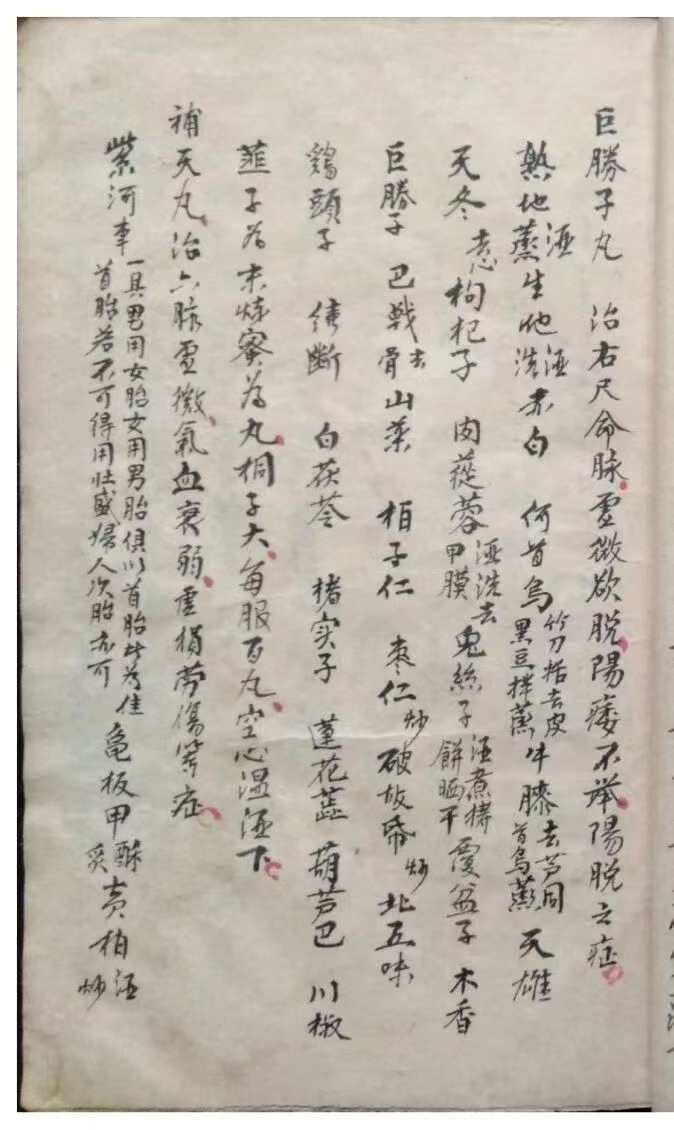 巨勝子丸 治右尺命脉虚微欲脱陽痿不举陽脱之症
熟地酒蒸生地酒洗赤白 何首烏竹刀括去皮黑豆拌蒸牛膝去芦同首烏蒸天雄
天冬去心枸杞子 肉蓯蓉酒洗去甲膜兔絲子酒煮搗餅晒干覆盆子 木香
巨勝子 巴戟去骨山薬 柏子仁 棗仁炒破故帋炒北五味
鷄頭子 續斷 白茯苓 楮实子 蓮花蕊 葫芦巴 川椒
韮子為末煉蜜為丸桐子大每服百丸空心温酒下
補天丸治六脉虚微氣血衰弱虚損劳傷等症
紫河車一具男用女胎女用男胎俱以首胎此為佳首胎若不可得用壮盛婦人次胎亦可龜板甲酥炙黄柏酒炒